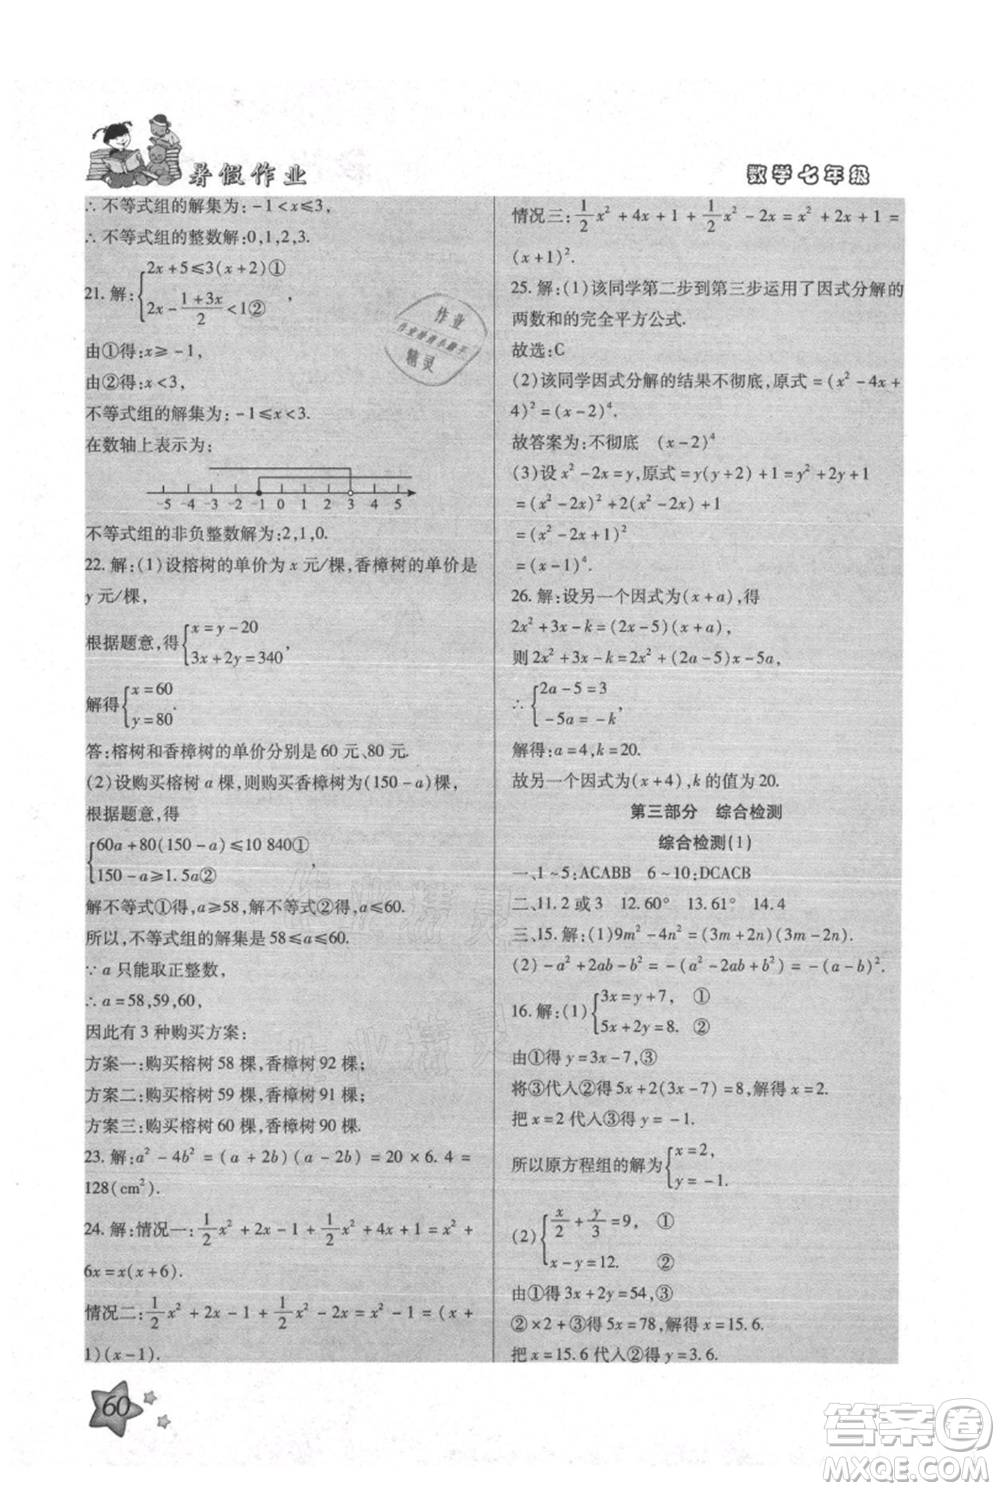 暑假作业
数学七年级
∴不等式组的解集为:-1<x≤3,
∴不等式组的整数解:0,1,2,3.
21.解:{2x+5≤3(x+2)①
2x-(1+3x)/2<1② ,
由①得:x≥-1,
由②得:x<3,
不等式组的解集为:-1≤x<3.
在数轴上表示为:
-5 -4 -3 -2 -1 0 1 2 3 4 5
不等式组的非负整数解为:2,1,0.
22.解:(1)设榕树的单价为x元/棵,香樟树的单价是
y元/棵,
根据题意,得{x=y-20
3x+2y=340,
解得{x=60
y=80.
答:榕树和香樟树的单价分别是60元、80元.
(2)设购买榕树a棵,则购买香樟树为(150-a)棵,
根据题意,得
{60a+80(150-a)≤10 840①
150-a≥1.5a② ,
解不等式①得,a≥58,解不等式②得,a≤60.
所以,不等式组的解集是58≤a≤60.
∵a只能取正整数,
∴a=58,59,60,
因此有3种购买方案:
方案一:购买榕树58棵,香樟树92棵;
方案二:购买榕树59棵,香樟树91棵;
方案三:购买榕树60棵,香樟树90棵.
23.解:a²-4b²=(a+2b)(a-2b)=20×6.4=
128(cm²).
24.解:情况一:1/2x²+2x-1+1/2x²+4x+1=x²+
6x=x(x+6).
情况二:1/2x²+2x-1+1/2x²-2x=x²-1=(x+
1)(x-1).
情况三:1/2x²+4x+1+1/2x²-2x=x²+2x+1=
(x+1)².
25.解:(1)该同学第二步到第三步运用了因式分解的
两数和的完全平方公式.
故选:C
(2)该同学因式分解的结果不彻底,原式=(x²-4x+
4)²=(x-2)⁴.
故答案为:不彻底 (x-2)⁴
(3)设x²-2x=y,原式=y(y+2)+1=y²+2y+1
=(x²-2x)²+2(x²-2x)+1
=(x²-2x+1)²
=(x-1)⁴.
26.解:设另一个因式为(x+a),得
2x²+3x-k=(2x-5)(x+a),
则2x²+3x-k=2x²+(2a-5)x-5a,
∴{2a-5=3
-5a=-k,
解得:a=4,k=20.
故另一个因式为(x+4),k的值为20.
第三部分 综合检测
综合检测(1)
一、1~5:ACABB 6~10:DCACB
二、11.2或3 12.60° 13.55° 14.4
三、15.解:(1)9m²-4n²=(3m+2n)(3m-2n).
(2)-a²+2ab-b²=-(a²-2ab+b²)=-(a-b)².
16.解:(1){3x=y+7, ①
5x+2y=8. ②
由①得y=3x-7,③
将③代入②得5x+2(3x-7)=8,解得x=2.
把x=2代入③得y=-1.
所以原方程组的解为{x=2,
y=-1.
(2){x/2+y/3=9, ①
x-y=12. ②
由①得3x+2y=54,③
②×2+③得5x=78,解得x=15.6.
把x=15.6代入②得y=3.6.
60
作业
精灵
作业精灵
作业精灵
答案卷
MXQE.COM